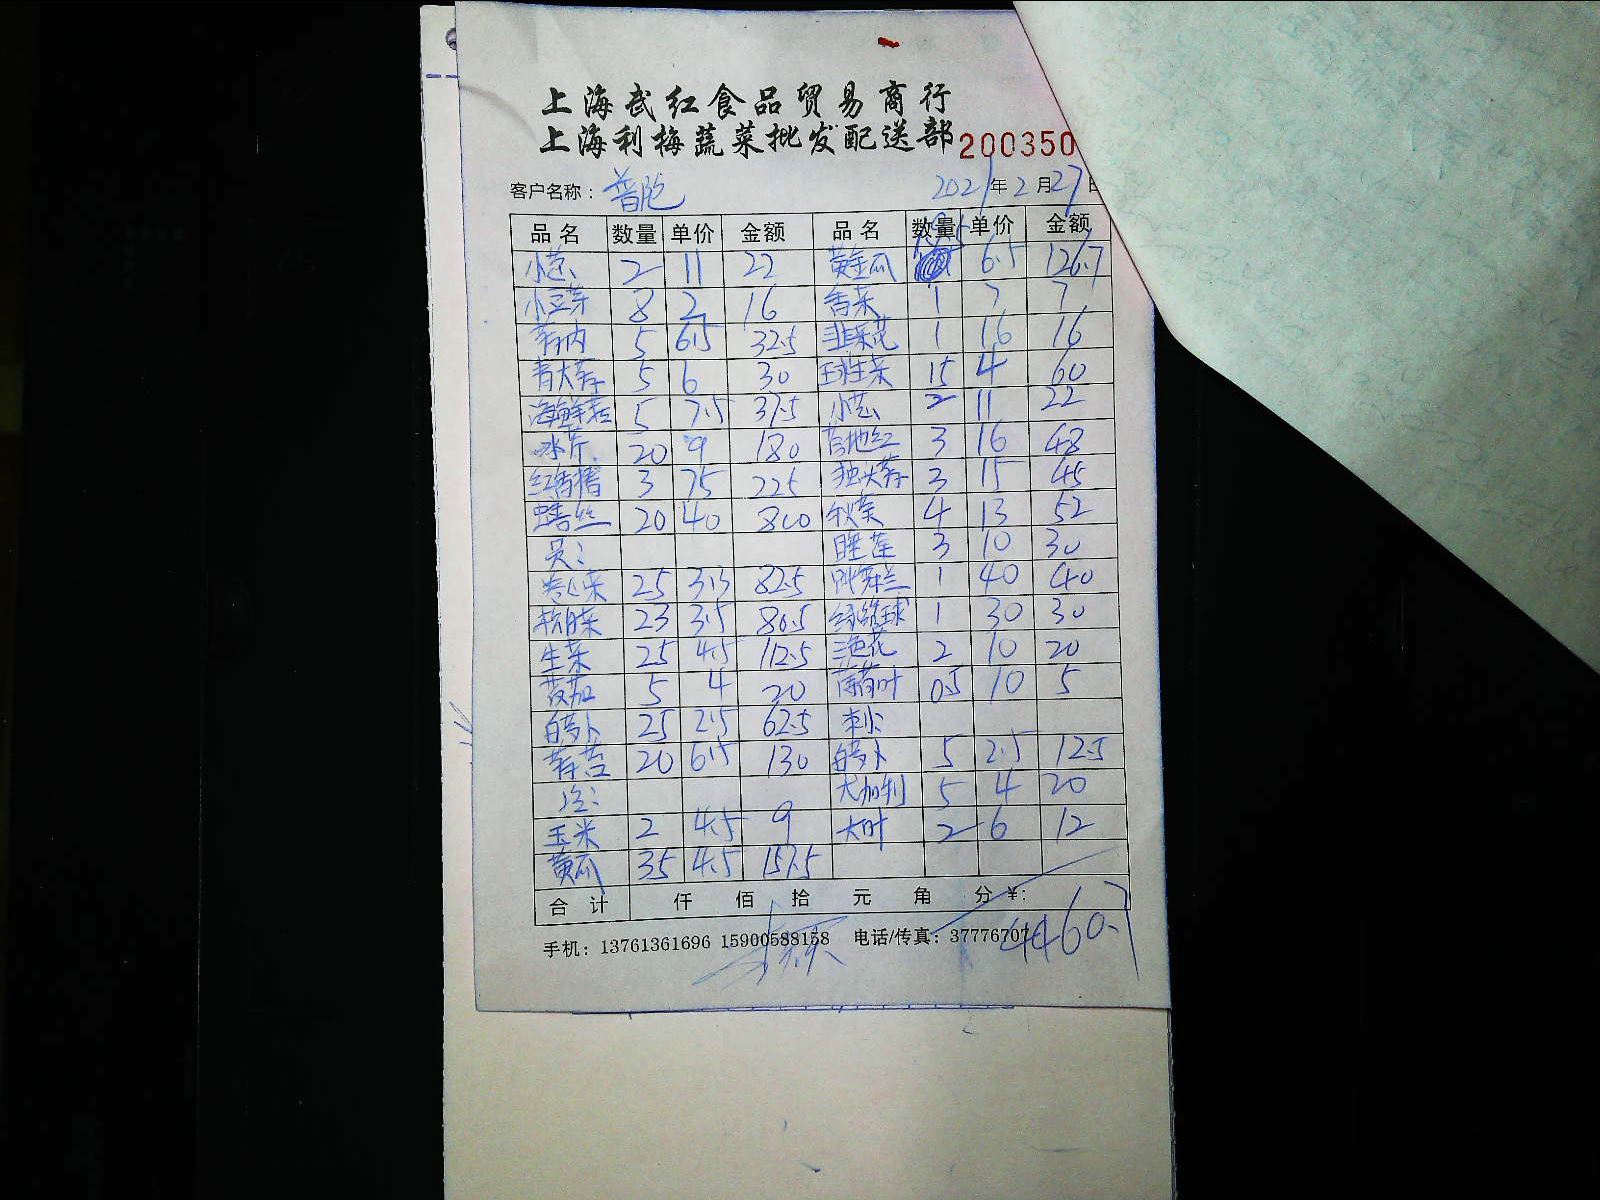 上海武红食品贸易商行
上海利梅蔬菜批发配送部 200350
客户名称：普陀 2021年2月27日
品名 数量 单价 金额 品名 数量 单价 金额
小葱 2 11 22 黄金瓜 19.5 6.5 126.7
小豆芽 8 2 16 香菜 1 7 7
5 6.5 32.5 韭菜花 1 16 16
青大 5 6 30 球生菜 15 4 60
海鲜菇 5 7.5 37.5 小葱 2 11 22
冰芹 20 9 180 3 16 48
3 75 225 独头 3 15 45
20 40 800 秋葵 4 13 52
睡莲 3 10 30
卷心菜 25 3.3 82.5 1 40 40
23 3.5 80.5 球 1 30 30
生菜 25 4.5 112.5 三色花 2 10 20
茄 5 4 20 薄荷叶 0.5 10 5
白萝卜 25 2.5 62.5
20 6.5 130 白萝卜 5 2.5 12.5
大加利 5 4 20
玉米 2 4.5 9 大叶 2 6 12
黄瓜 35 4.5 157.5
合计 仟 佰 拾 元 角 分 ¥: 4460.7
手机：13761361696 15900588158 电话/传真：37776707